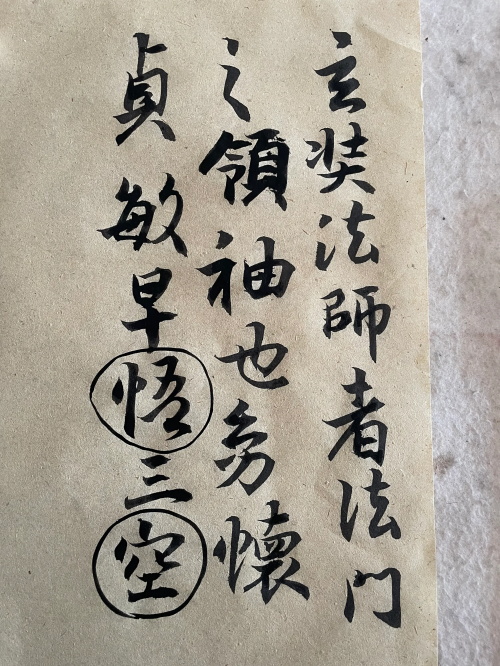 玄奘法師者法門
之領袖也㓜懷
貞敏早悟三空